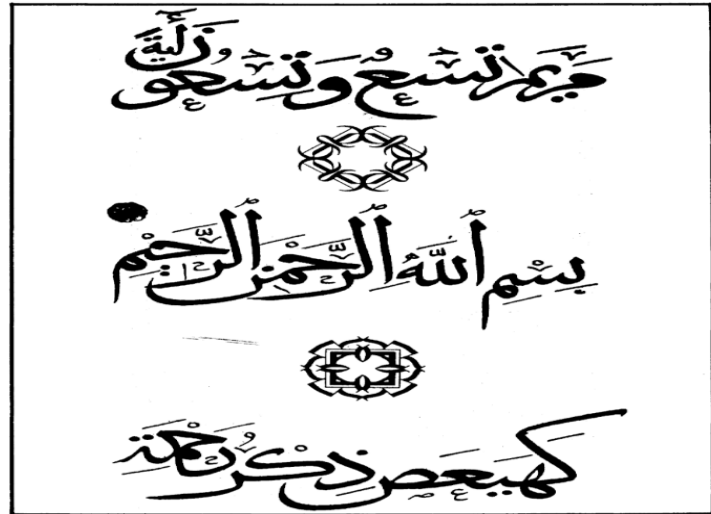 مَرْيَمَ تِسْعٌ وَتِسْعُونَ أَيَةً
بِسْمِ اُللَّهِ اِلرَّحْمَٰنِ اِلرَّحِيمِ
كٓهيعٓصٓ ذِكْرُ رَحْمَتِ